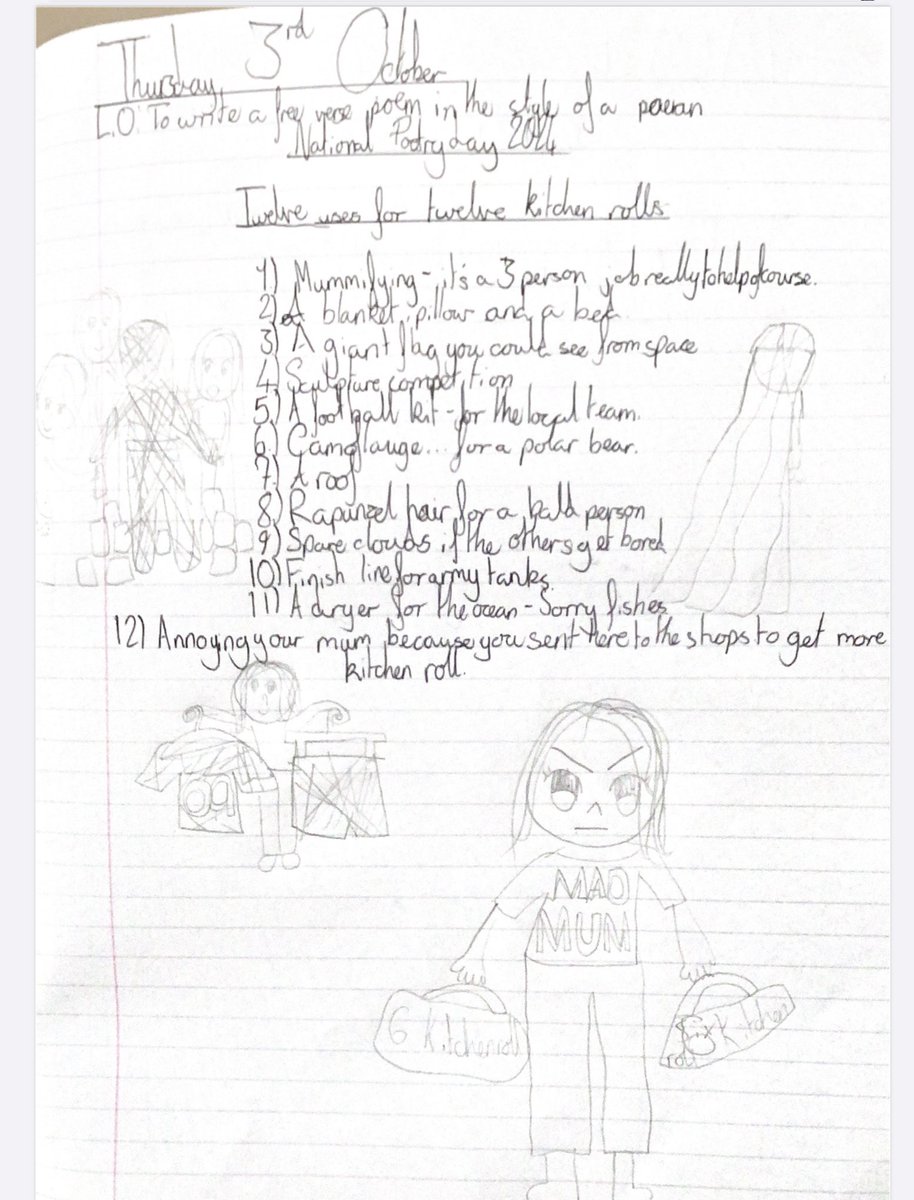 Thursday 3rd October
L.O: To write a free verse poem in the style of a
National Poetry day 2024
Twelve uses for twelve kitchen rolls
1) Mummifying - it's a 3 person job really to help ofcourse.
2) A blanket, pillow and a bed.
3) A giant flag you could see from space
4) Sculpture competition
5) A football kit - for the local team.
6) Camoflauge... for a polar bear.
7) A roof
8) Rapunzel hair for a bald person
9) Spare clouds if the others get bored
10) Finish line for army tanks.
11) A dryer for the ocean - Sorry fishes
12) Annoyng your mum because you sent here to the shops to get more
kitchen roll.
MAD
MUM
6 Kitchen roll
Kitchen
roll